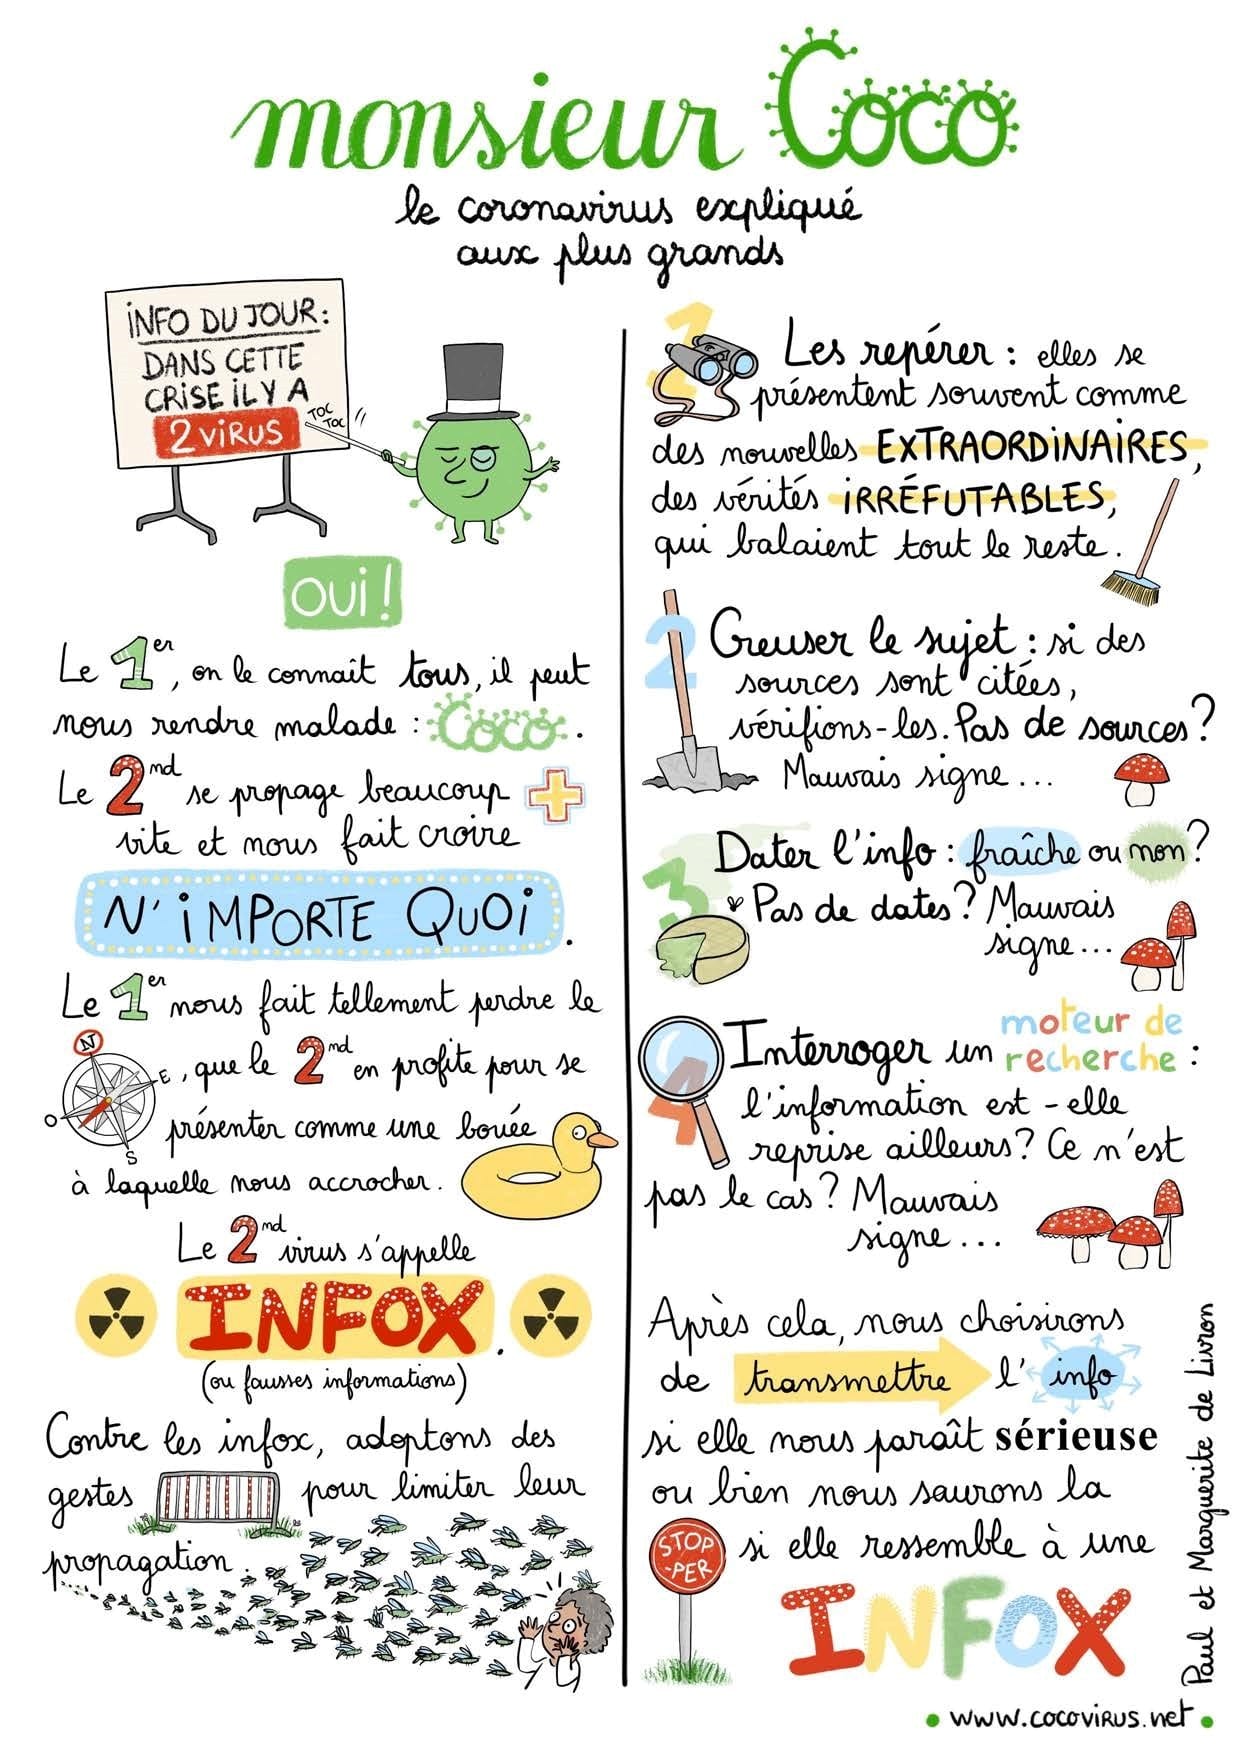 monsieur Coco
le coronavirus expliqué
aux plus grands
iNFO DU JOUR :
DANS CETTE
CRISE iL Y A
2 ViRUS
TOC
TOC
OUi !
Le 1er, on le connaît tous, il peut
nous rendre malade : Coco.
Le 2nd se propage beaucoup +
vite et nous fait croire
N'iMPORTE QUOi.
Le 1er nous fait tellement perdre le
N
E
S
O
, que le 2nd en profite pour se
présenter comme une bouée
à laquelle nous accrocher.
Le 2nd virus s'appelle
INFOX.
(ou fausses informations)
Contre les infox, adoptons des
gestes pour limiter leur
propagation.
1 Les repérer : elles se
présentent souvent comme
des nouvelles EXTRAORDiNAiRES,
des vérités iRRÉFUTABLES,
qui balaient tout le reste.
2 Creuser le sujet : si des
sources sont citées,
vérifions-les. Pas de sources ?
Mauvais signe...
3 Dater l'info : fraîche ou non ?
Pas de dates ? Mauvais
signe...
4 Interroger un moteur de
recherche :
l'information est-elle
reprise ailleurs ? Ce n'est
pas le cas ? Mauvais
signe...
Après cela, nous choisirons
de transmettre l'info
si elle nous paraît sérieuse
ou bien nous saurons la
STOP
-PER
si elle ressemble à une
INFOX
Paul et Marguerite de Livron
• www.cocovirus.net •